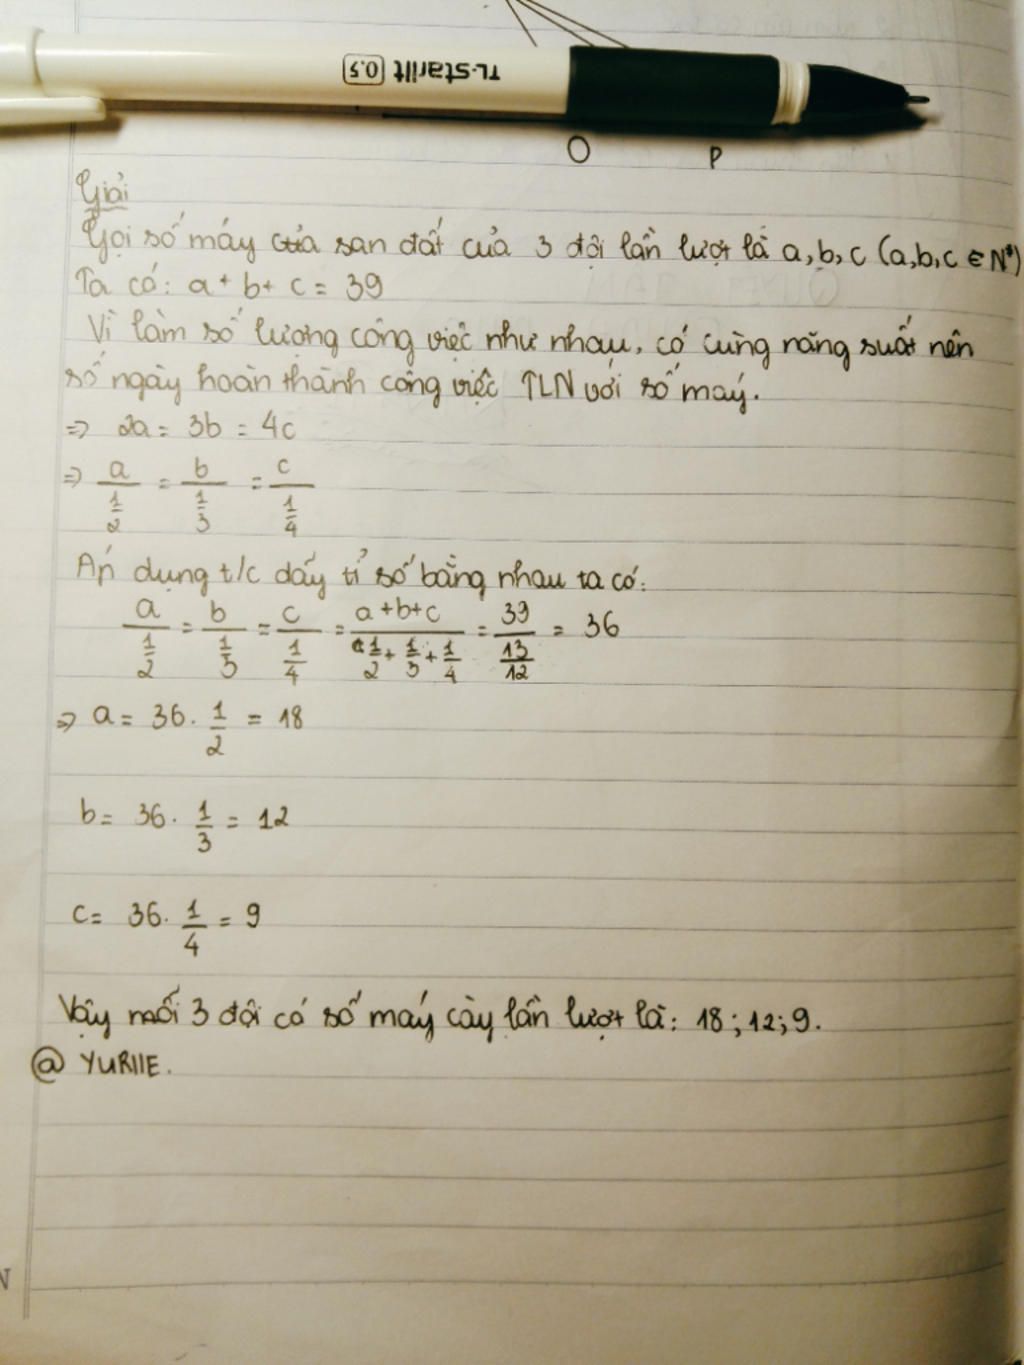 TL-Starlit 0.5
O P
Giải
Gọi số máy của san đất của 3 đội lần lượt là a, b, c (a,b,c ∈ N*)
Ta có: a + b + c = 39
Vì làm số lượng công việc như nhau, có cùng năng suất nên
số ngày hoàn thành công việc TLN với số máy.
=> 2a = 3b = 4c
=> a/(1/2) = b/(1/3) = c/(1/4)
Áp dụng t/c dấy tỉ số bằng nhau ta có:
a/(1/2) = b/(1/3) = c/(1/4) = (a+b+c)/(1/2 + 1/3 + 1/4) = 39/(13/12) = 36
=> a = 36 . 1/2 = 18
b = 36 . 1/3 = 12
c = 36 . 1/4 = 9
Vậy mối 3 đội có số máy cày lần lượt là: 18 ; 12 ; 9.
@ YURIIE.
N